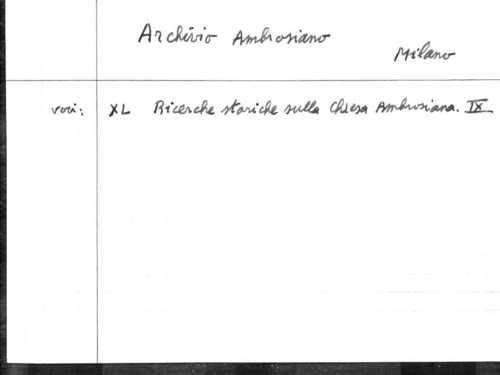 Archivio Ambrosiano
Milano
voci: XL Ricerche storiche sulla Chiesa Ambrosiana. IX